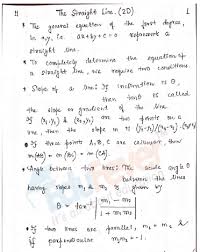 The Straight Line. (2D)
1
* The general equation of the first degree,
in x,y, i.e. ax+by+c=0 represents a
straight line.
* To completely determine the equation of
a straight line, we require two conditions.
* Slope of a line: If inclination is θ,
then tanθ is called
the slope or gradient of the line.
If (x₁,y₁) & (x₂,y₂) are two points on a
line, then the slope is m = (y₂-y₁)/(x₂-x₁)
* If three points A, B, C are collinear, then
m(AB) = m(BC) = m(CA).
* Angle between two lines: The acute angle θ
between the lines
having slopes m₁ & m₂ is given by
θ = tan⁻¹ | m₁ - m₂ / 1 + m₁m₂ |
* If two lines are parallel, m₁ = m₂ &
if perpendicular m₁m₂ = -1.